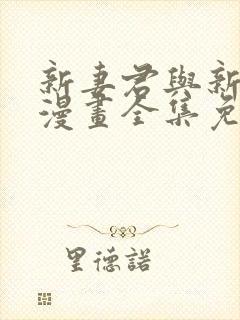 新妻君與新
漫畫全集免
里德諾